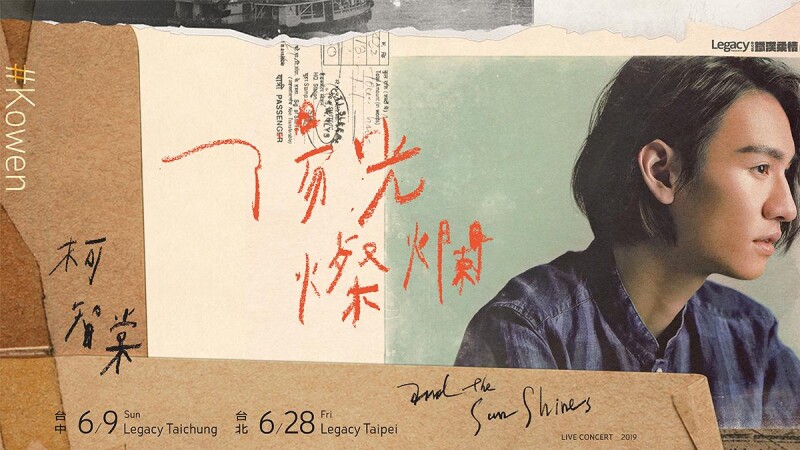 Legacy 鐵漢柔情
#Kowen
यात्री PASSENGER
陽光
燦爛
柯
智棠
and the
Sun Shines
台中 6/9 Sun Legacy Taichung
台北 6/28 Fri Legacy Taipei
LIVE CONCERT 2019